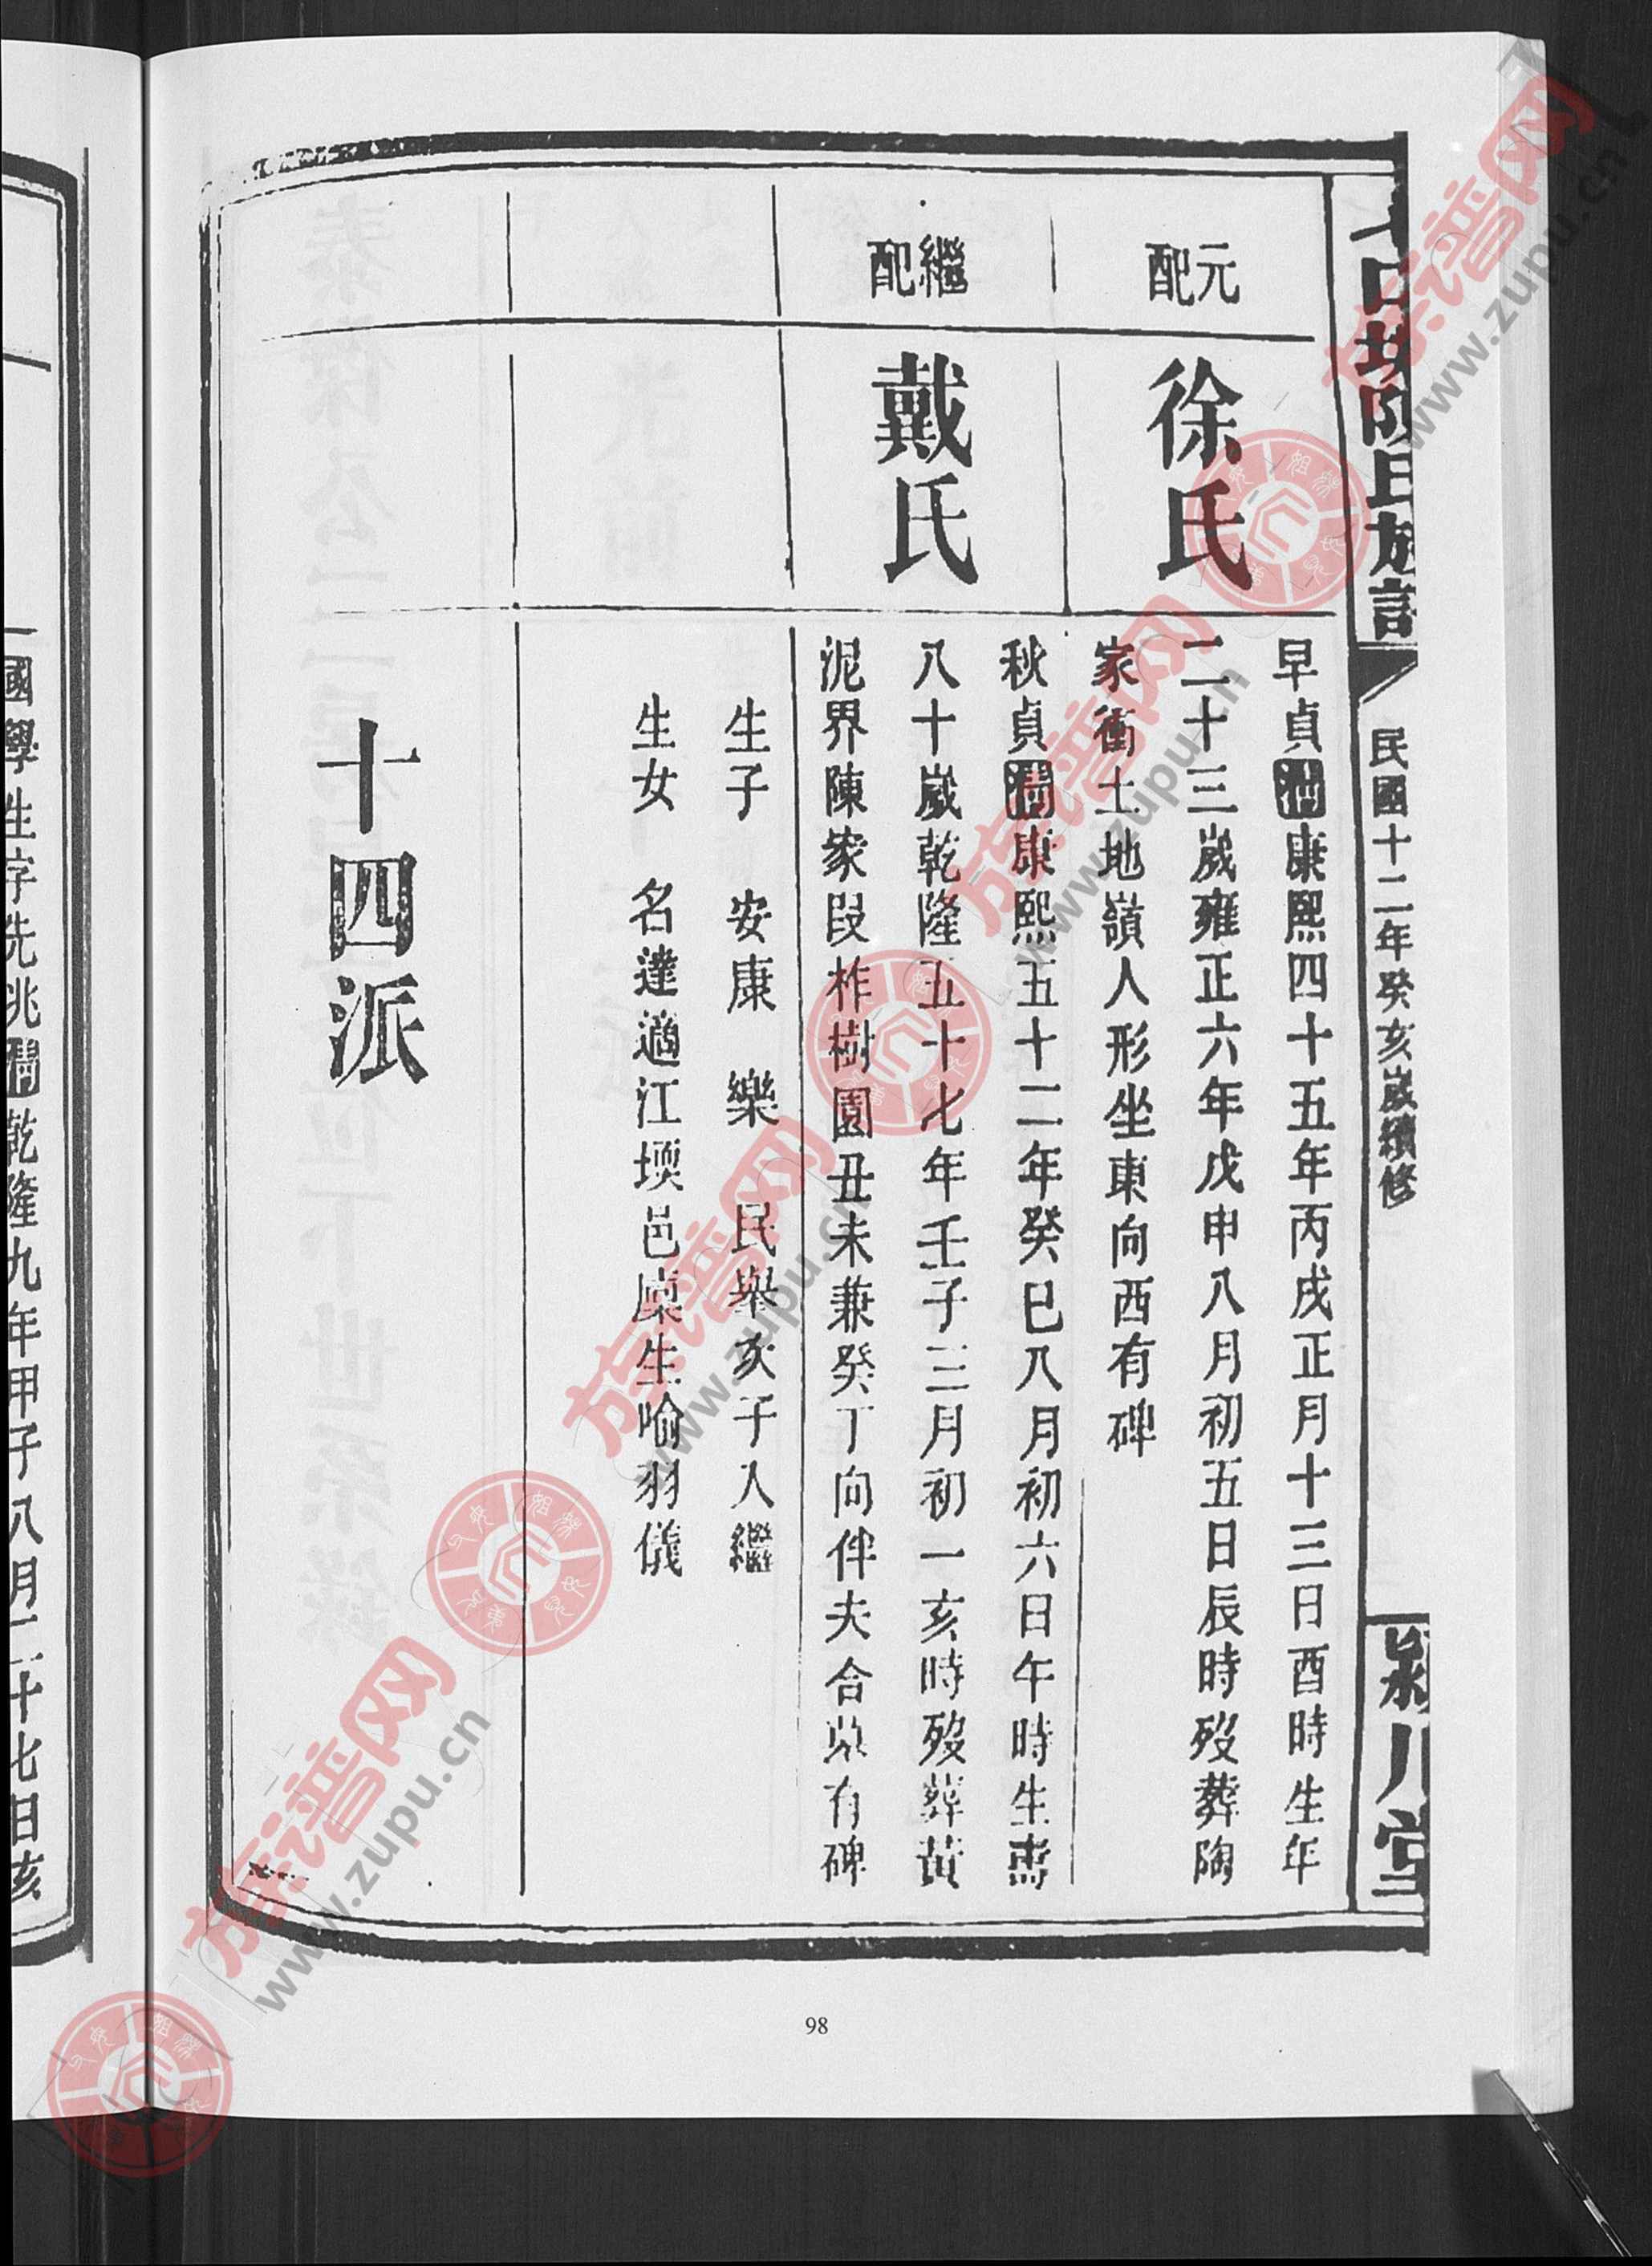 陳氏族譜
民國十二年癸亥歲續修
潁川堂
元配
徐氏
早貞清康熙四十五年丙戌正月十三日酉時生年
二十三歲雍正六年戊申八月初五日辰時歿葬陶
家衝土地嶺人形坐東向西有碑
繼配
戴氏
秋貞清康熙五十二年癸巳八月初六日午時生壽
八十歲乾隆五十七年壬子三月初一亥時歿葬黃
泥界陳家段柞樹園丑未兼癸丁向伴夫合墓有碑
生子 安康 樂 民舉亥子入繼
生女 名達適江堧邑廩生喻羽儀
十四派
98
國學生字先兆清乾隆九年甲子八月二十七日亥
族谱网
www.zupu.cn
族谱网
www.zupu.cn
族谱网
www.zupu.cn
族谱网
www.zupu.cn